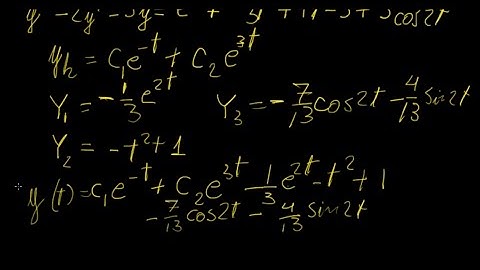 y_h = c₁e^{-t} + c₂e^{3t}
Y₁ = -1/3 e^{2t} Y₃ = -7/13 cos2t - 4/13 sin2t
Y₂ = -t² + 1
y(t) = c₁e^{-t} + c₂e^{3t} - 1/3 e^{2t} - t² + 1
-7/13 cos2t - 4/13 sin2t